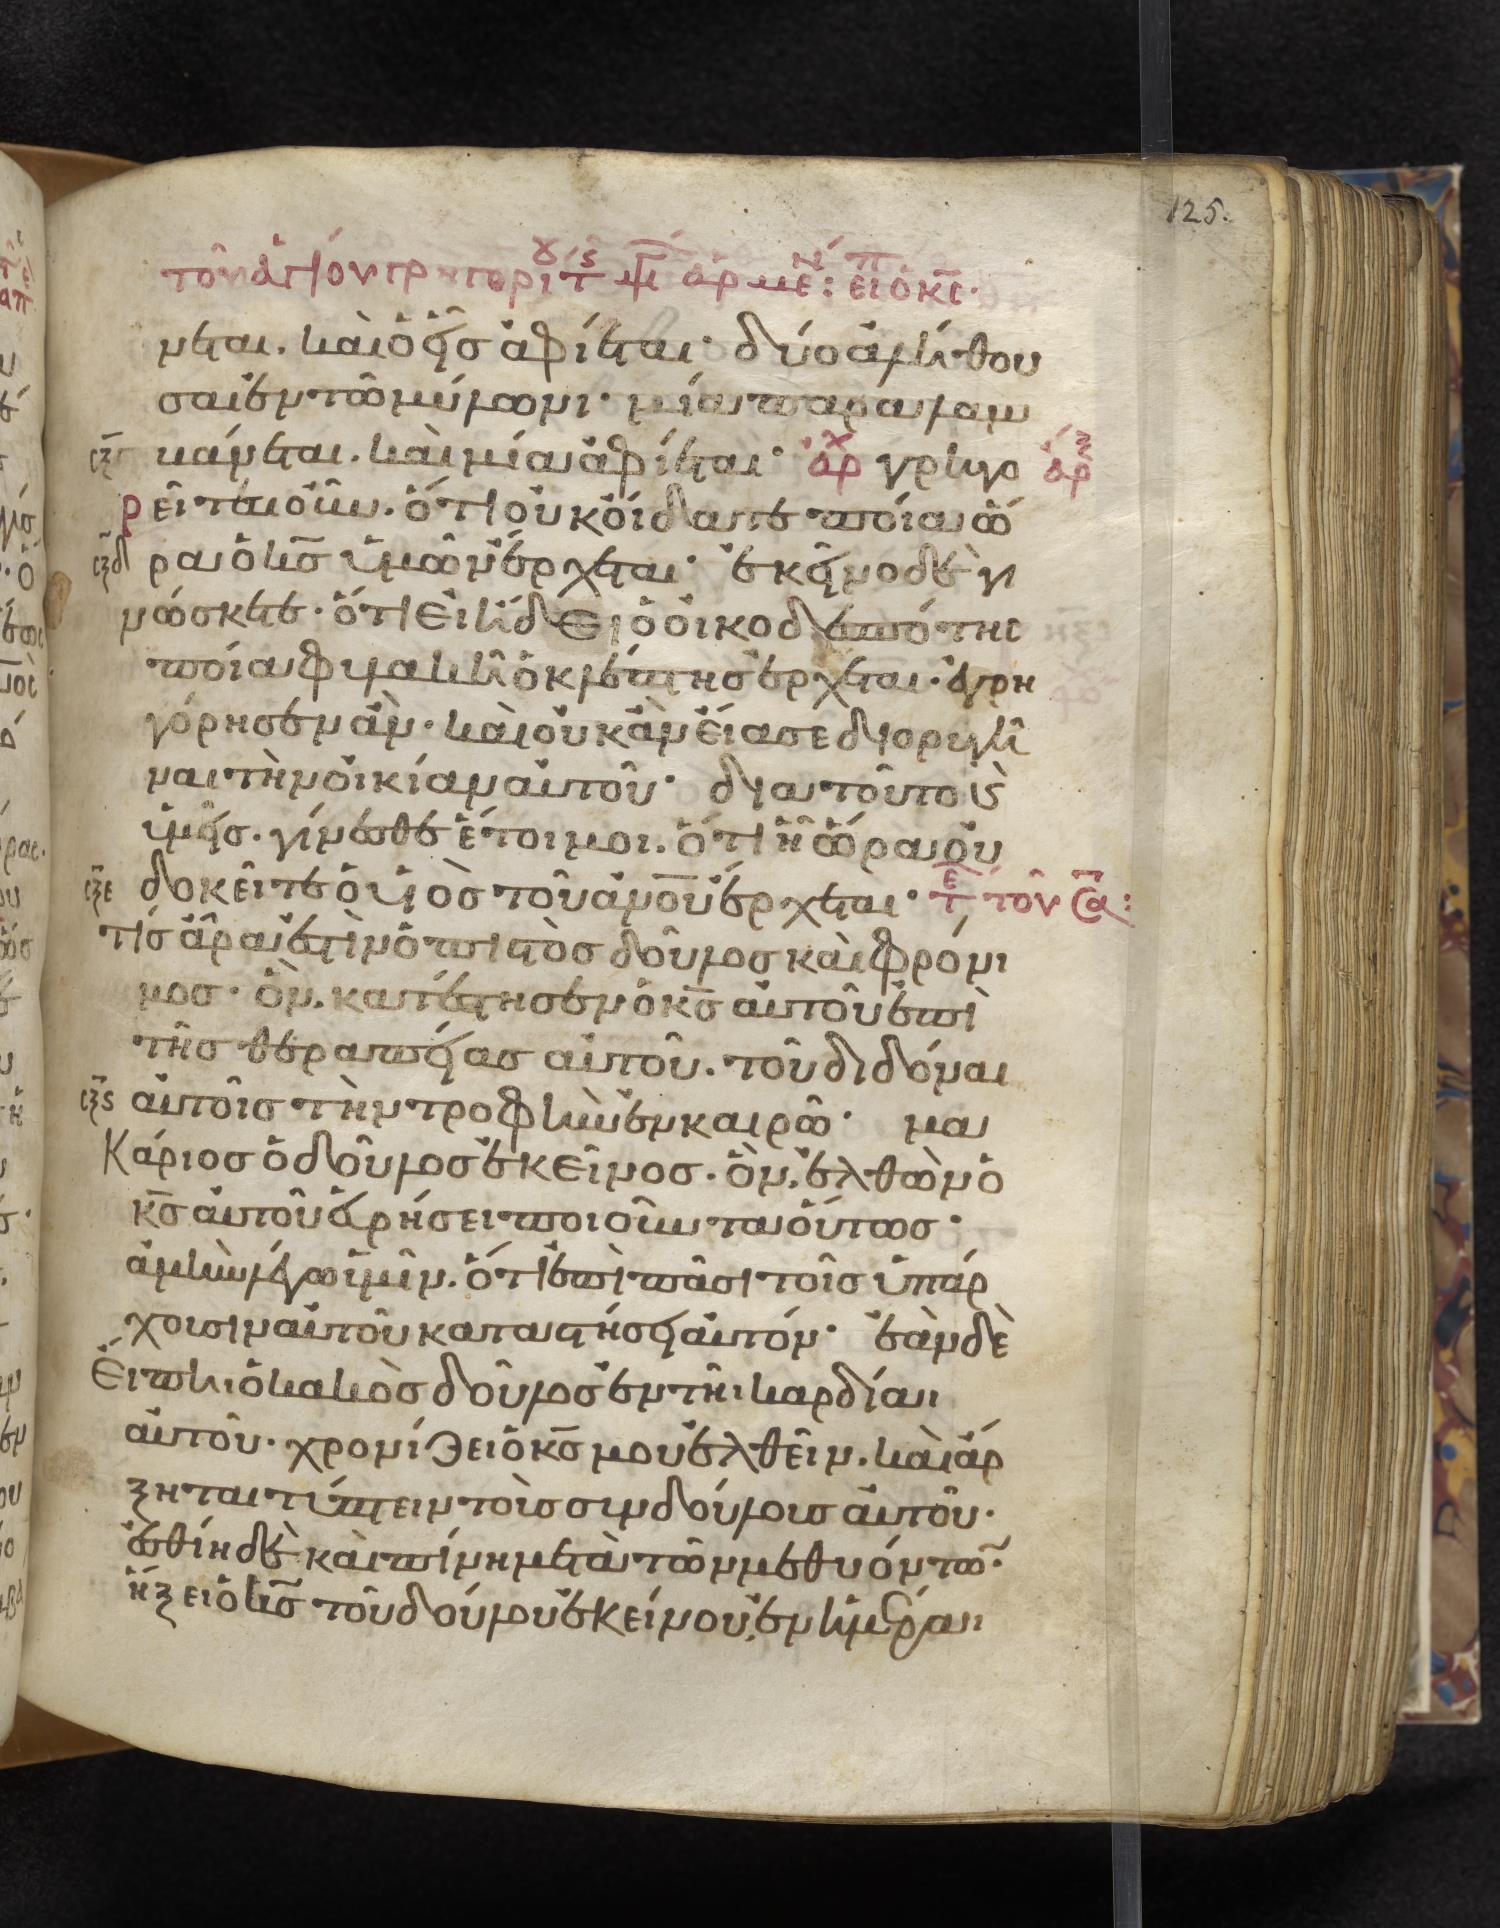 125.
τον άγιον γρηγορι
νεται. και ὁ εἷς ἀφίεται· δύο ἀλήθου
σαι ἐν τῶ μύλωνι· μία παραλαμ
βάνεται. και μία ἀφίεται· ἀρχ γρηγο ἀρξ
ρεῖτε οὖν. ὅτι οὐκ οἴδατε ποία ὥ
ρα ὁ κ̅ς̅ ὑμῶν ἔρχεται· ἐκεῖνο δὲ γι
νώσκετε. ὅτι εἰ ἤδει ὁ οἰκοδεσπότης
ποία φυλακῆ ὁ κλέπτης ἔρχεται. ἐγρη
γόρησεν ἂν. καὶ οὐκ ἂν εἴασε διορυγῆ
ναι τὴν οἰκίαν αὐτοῦ· δια τοῦτο καὶ
ὑμεῖς. γίνεσθε ἕτοιμοι. ὅτι ἧ ὥρα οὐ
δοκεῖτε ὁ υἱὸς τοῦ ἀ̅ν̅ο̅υ̅ ἔρχεται· τε τὸν σα:
τίς ἆρα ἐστὶν ὁ πιστὸς δοῦλος καὶ φρόνι
μος· ὃν κατέστησεν ὁ κ̅ς̅ αὐτοῦ ἐπὶ
τῆς θεραπείας αὐτοῦ. τοῦ διδόναι
αὐτοῖς τὴν τροφὴν ἐν καιρῶ· μα
Κάριος ὁ δοῦλος ἐκεῖνος. ὃν ἐλθὼν ὁ
κ̅ς̅ αὐτοῦ εὑρήσει ποιοῦντα οὕτως·
ἀμὴν λέγω ὑμῖν. ὅτι ἐπὶ πᾶσι τοῖς ὑπάρ
χουσιν αὐτοῦ καταστήσει αὐτόν· ἐὰν δὲ
Εἴπη ὁ κακὸς δοῦλος ἐν τῆι καρδίαι
αὐτοῦ· χρονίζει ὁ κ̅ς̅ μου ἐλθεῖν. καὶ ἄρ
ξηται τύπτειν τοὺς συνδούλους αὐτοῦ·
ἐσθίη δὲ καὶ πίνη μετὰ τῶν μεθυόντω̅·
ἥξει ὁ κ̅ς̅ τοῦ δούλου ἐκείνου ἐν ἡμέραι